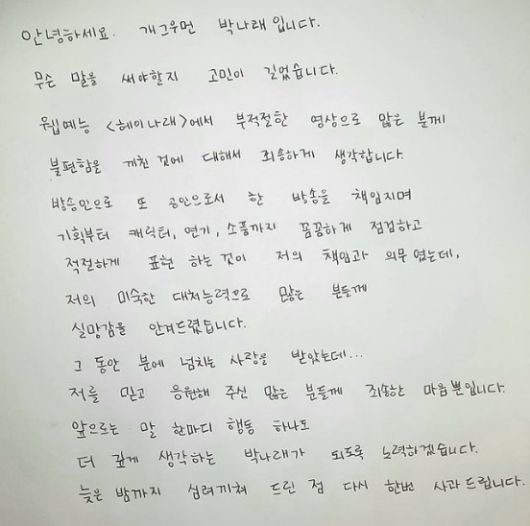 안녕하세요. 개그우먼 박나래입니다.
무슨 말을 써야할지 고민이 길었습니다.
웹예능 <헤이나래>에서 부적절한 영상으로 많은 분께
불편함을 끼친 것에 대해서 죄송하게 생각합니다.
방송인으로 또 공인으로서 한 방송을 책임지며
기획부터 캐릭터, 연기, 소품까지 꼼꼼하게 점검하고
적절하게 표현 하는것이 저의 책임과 의무 였는데,
저의 미숙한 대처능력으로 많은 분들께
실망감을 안겨드렸습니다.
그 동안 분에 넘치는 사랑을 받았는데...
저를 믿고 응원해 주신 많은 분들께 죄송한 마음뿐입니다.
앞으로는 말 한마디 행동 하나도
더 깊게 생각하는 박나래가 되도록 노력하겠습니다.
늦은 밤까지 심려끼쳐 드린 점 다시 한번 사과드립니다.